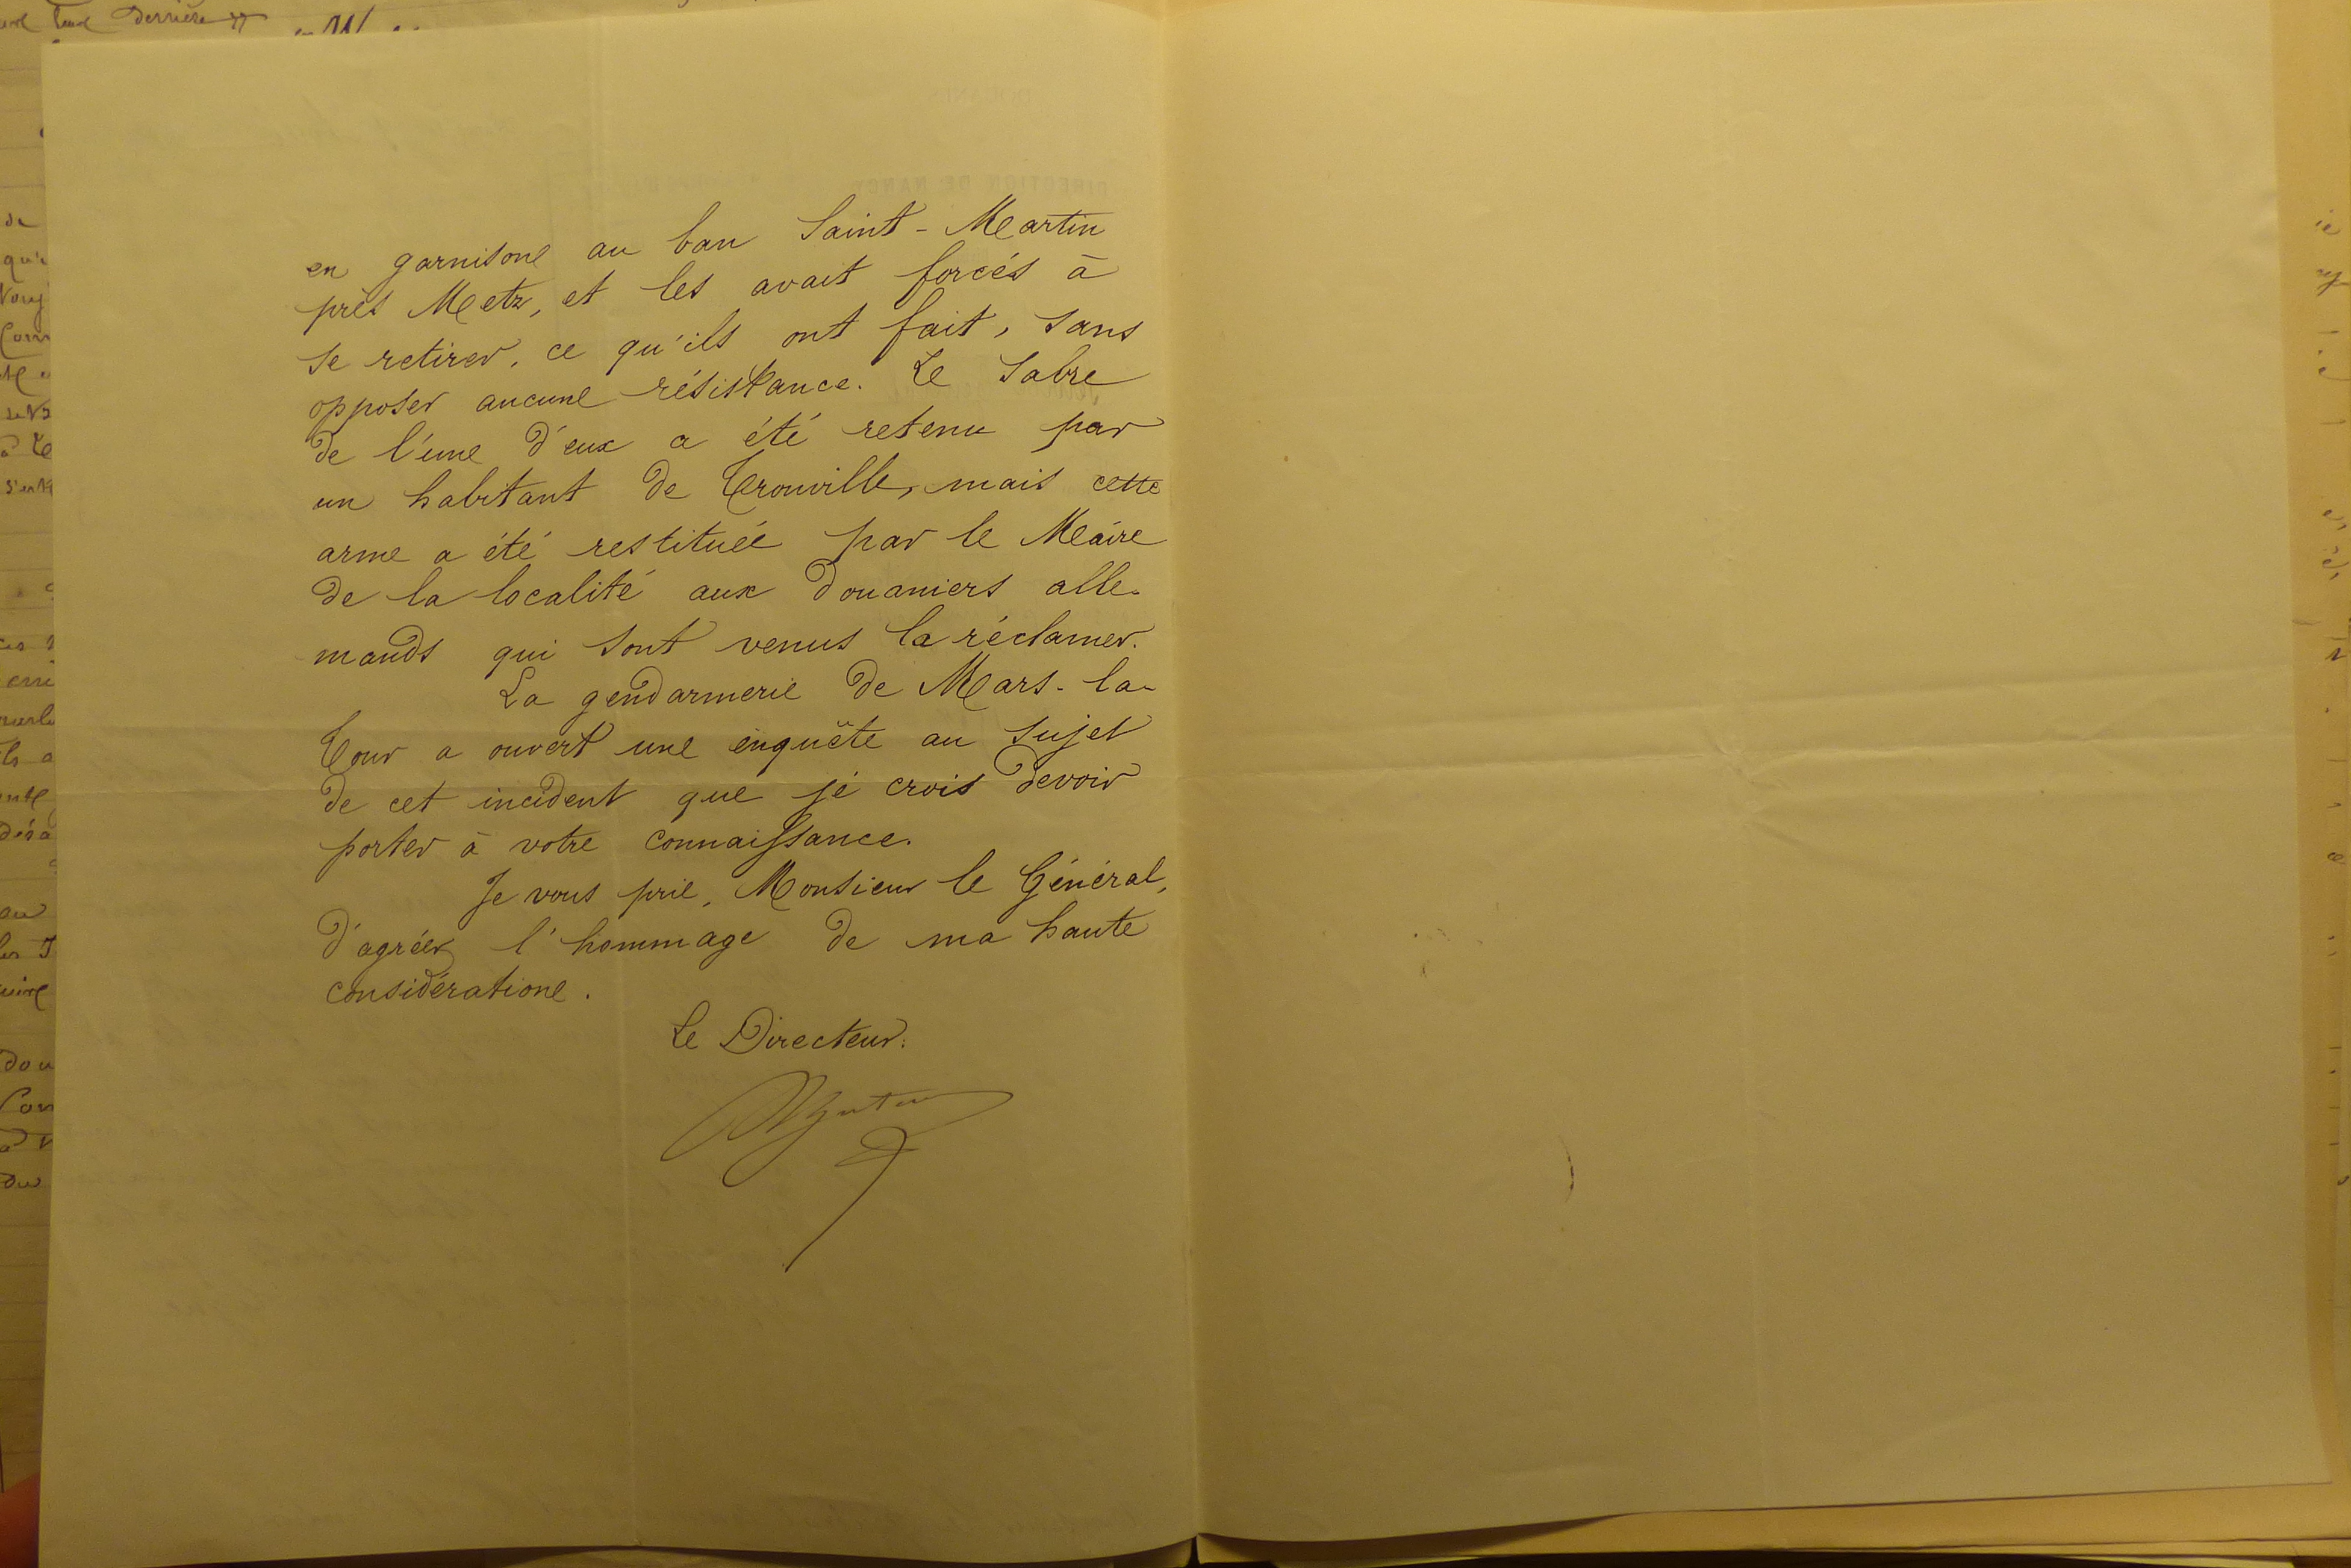 en garnison au ban Saint-Martin
près Metz, et les avait forcés à
se retirer, ce qu'ils ont fait, sans
opposer aucune résistance. Le sabre
de l'un d'eux a été retenu par
un habitant de Tronville, mais cette
arme a été restituée par le Maire
de la localité aux douaniers alle-
mands qui sont venus la réclamer.
La gendarmerie de Mars-la-
Tour a ouvert une enquête au sujet
de cet incident que je crois devoir
porter à votre connaissance.
Je vous prie, Monsieur le Général,
d'agréer l'hommage de ma haute
considération.
Le Directeur.